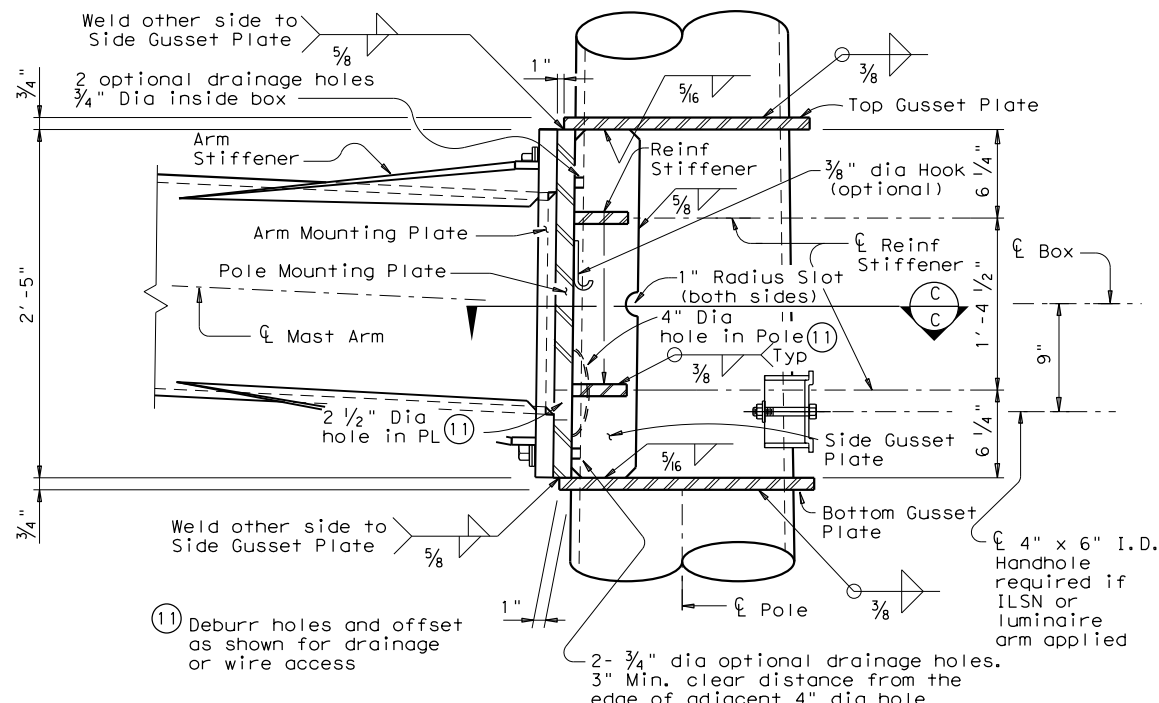 Weld other side to
Side Gusset Plate
5/8
2 optional drainage holes
3/4" Dia inside box
3/4"
1"
5/16
3/8
Top Gusset Plate
Arm
Stiffener
Reinf
Stiffener
3/8" dia Hook
(optional)
6 1/4"
5/8
Arm Mounting Plate
℄ Reinf
Stiffener
℄ Box
Pole Mounting Plate
1" Radius Slot
(both sides)
C
C
2'-5"
1'-4 1/2"
℄ Mast Arm
4" Dia
hole in Pole 11
9"
3/8
Typ
2 1/2" Dia
hole in PL 11
Side Gusset
Plate
6 1/4"
5/16
3/4"
Bottom Gusset
Plate
Weld other side to
Side Gusset Plate
5/8
℄ 4" x 6" I.D.
Handhole
required if
ILSN or
luminaire
arm applied
1"
℄ Pole
3/8
11 Deburr holes and offset
as shown for drainage
or wire access
2- 3/4" dia optional drainage holes.
3" Min. clear distance from the
edge of adjacent 4" dia hole